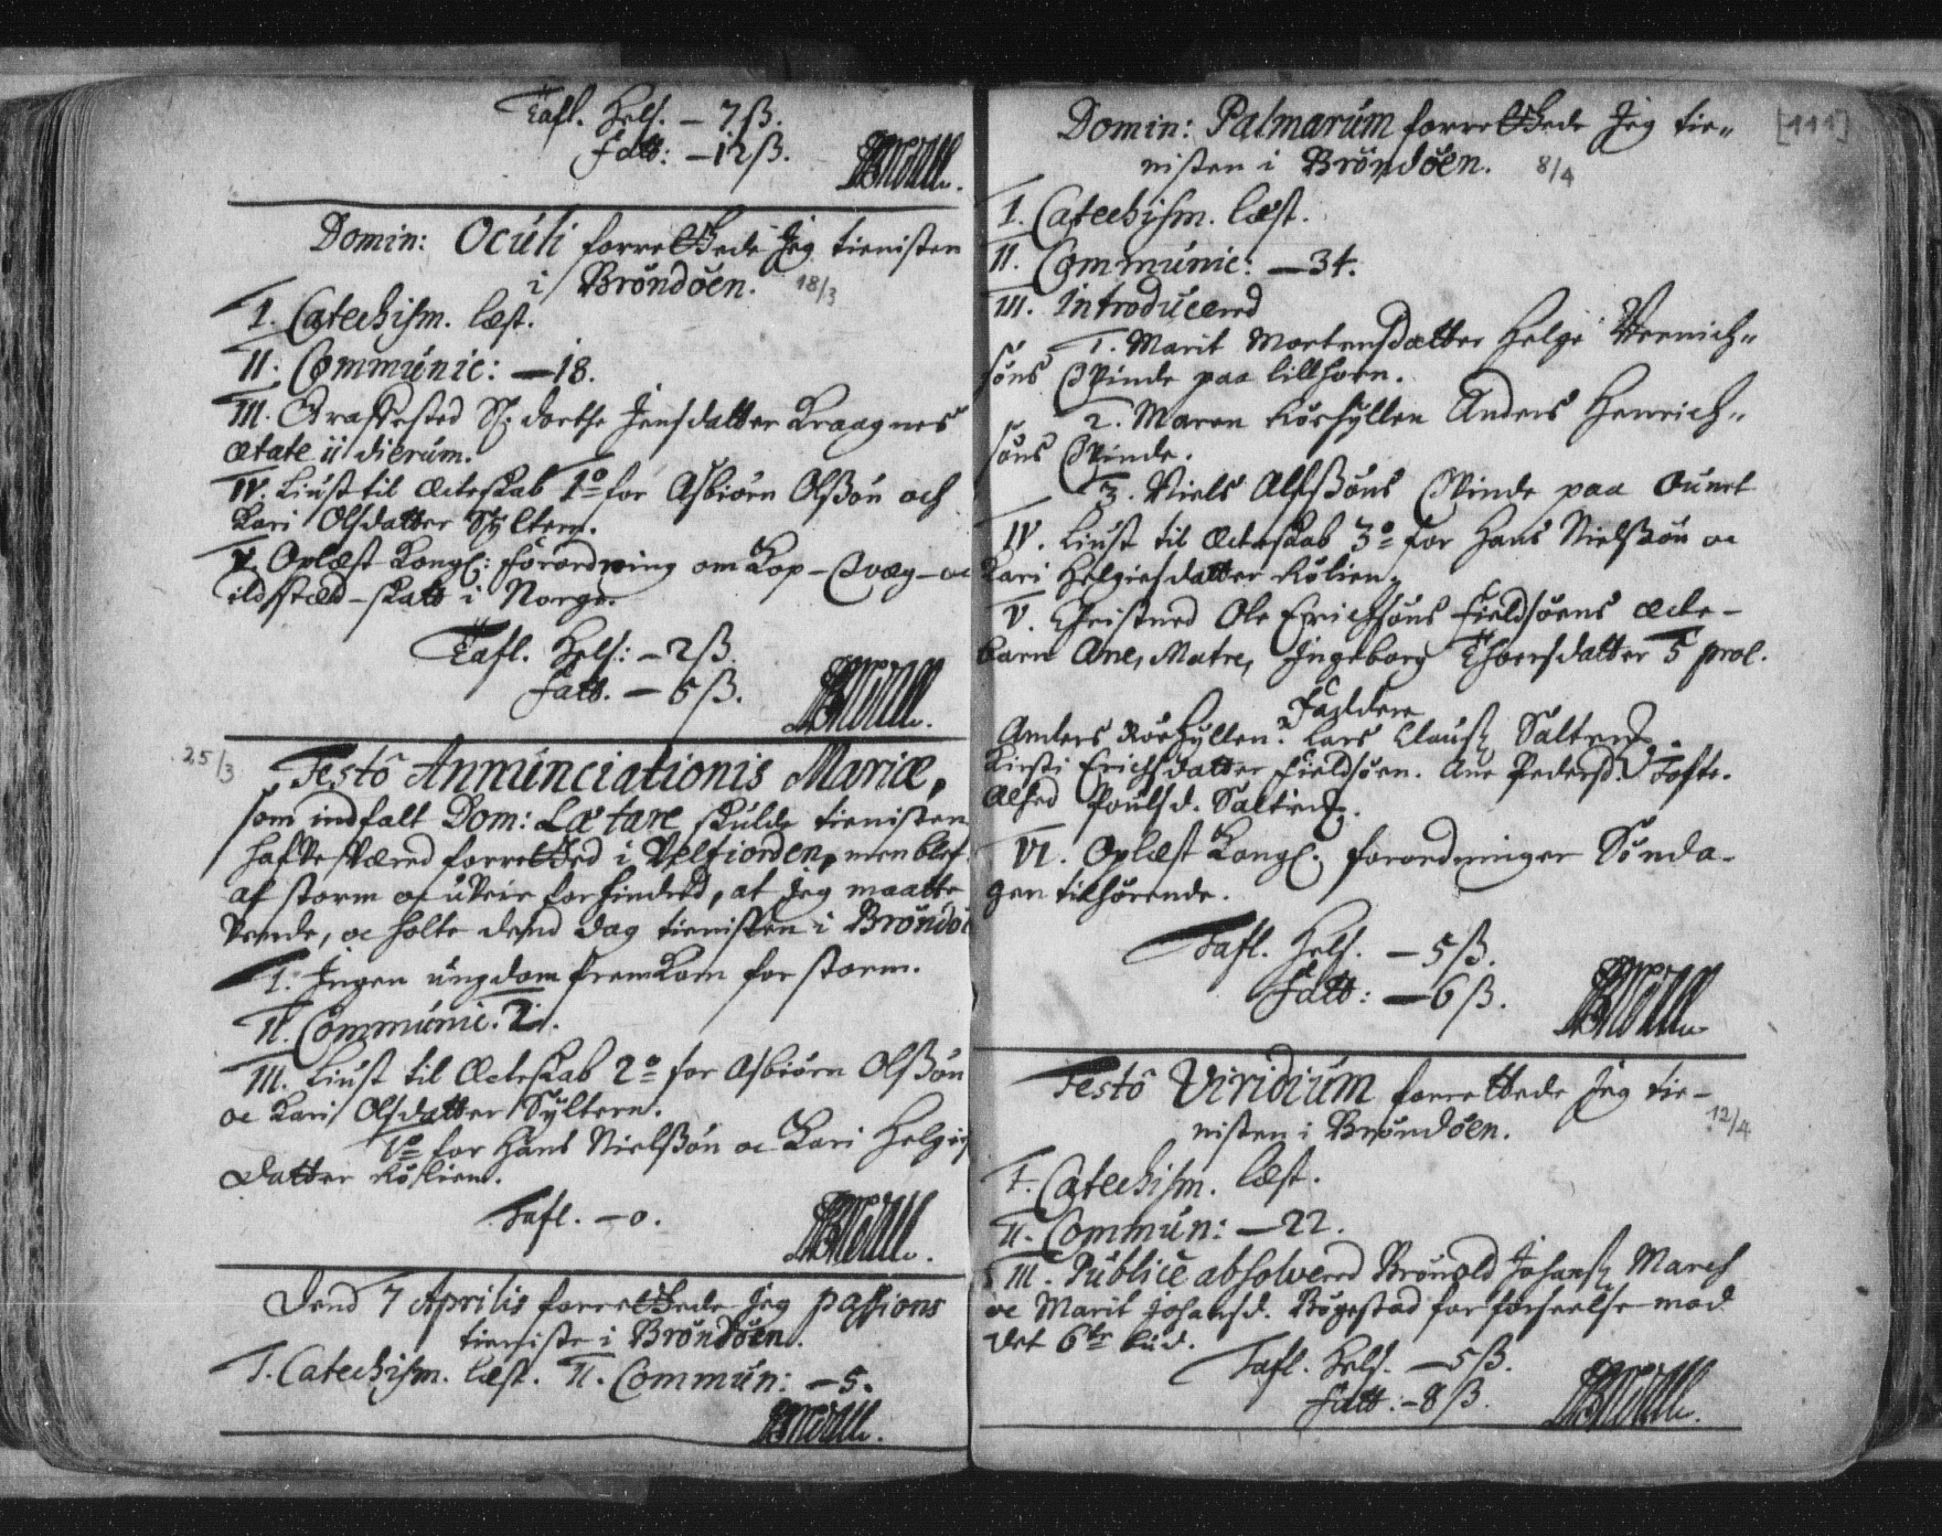 Tafl. Hels. – 7 ß.
Fatt: – 12 ß.
Domin: Oculi forrettede Jeg tienisten
i Brøndøen. 18/3
I. Catechism. læst.
II. Communic: – 18.
III. Graffested Dorthe Jensdatter Kraagnes
ætate 11 dierum.
IV. Liust til Ecteskab 1o for Asbiørn Olßøn och
Kari Olsdatter Sÿltern.
V. Oplæst Kongl: forordning om Kop – Qvæg – oc
ildsted – skatt i Norge.
Tafl. Hels: – 2 ß.
Fatt. – 6 ß.
25/3
Festô Annunciationis Mariæ,
som indfalt Dom: Lætare skulde tienisten
hafve været forretted i Velfiorden, men blef
af storm oc uveir forhindred, at Jeg maatte
vende, oc holte dend dag tienisten i Brøndø
I. Ingen ungdom fremkom for storm.
II. Communic. 2.
III. Liust til Ecteskab 2o for Asbiørn Olßøn
oc Kari Olsdatter Sÿltern.
1o for Hans Nielßøn oc Kari Helgies
datter Rølien.
Tafl. – 0.
Dend 7 Aprilis forrettede Jeg passions
tieniste i Brøndøen.
I. Catechism. læst. II. Commun: – 5.
[111]
Domin: Palmarum forrettede Jeg tie„
nisten i Brøndøen. 8/4
I. Catechism. læst.
II. Communic: – 34.
III. Introducered
1. Marit Mortensdatter Helge
søns Qvinde paa lillhorn.
2. Maren Rørhÿllen Anders Henrich„
søns Qvinde.
3. Niels Alfßøns Qvinde paa
IV. Liust til Ecteskab 3o for Hans Nielßøn oc
Kari Helgiesdatter Rølien.
V. Christned Ole Erichsøns Fieldsøens Ecte–
barn Ane, Matre, Ingeborg Thorsdatter 5 prol.
Faddere
Anders Rørhÿllen. Lars Saltern.
Kirsti Erichsdatter Fieldsøen. Ane Pedersd. Tofte.
Poulsd. Saltern.
VI. Oplæst Kongl. forordninger Sønda–
gen tilhørende.
Tafl. Hels. – 5 ß.
Fatt: – 6 ß.
Festô Viridium forrettede Jeg tie–
nisten i Brøndøen. 12/4
I. Catechism. læst.
II. Commun: – 22.
III. Publice absolvered Brønold March
oc Marit Johansd. Bøgestad for forseelse mod
det 6te bud.
Tafl. Hels. – 5 ß.
Fatt: – 8 ß.